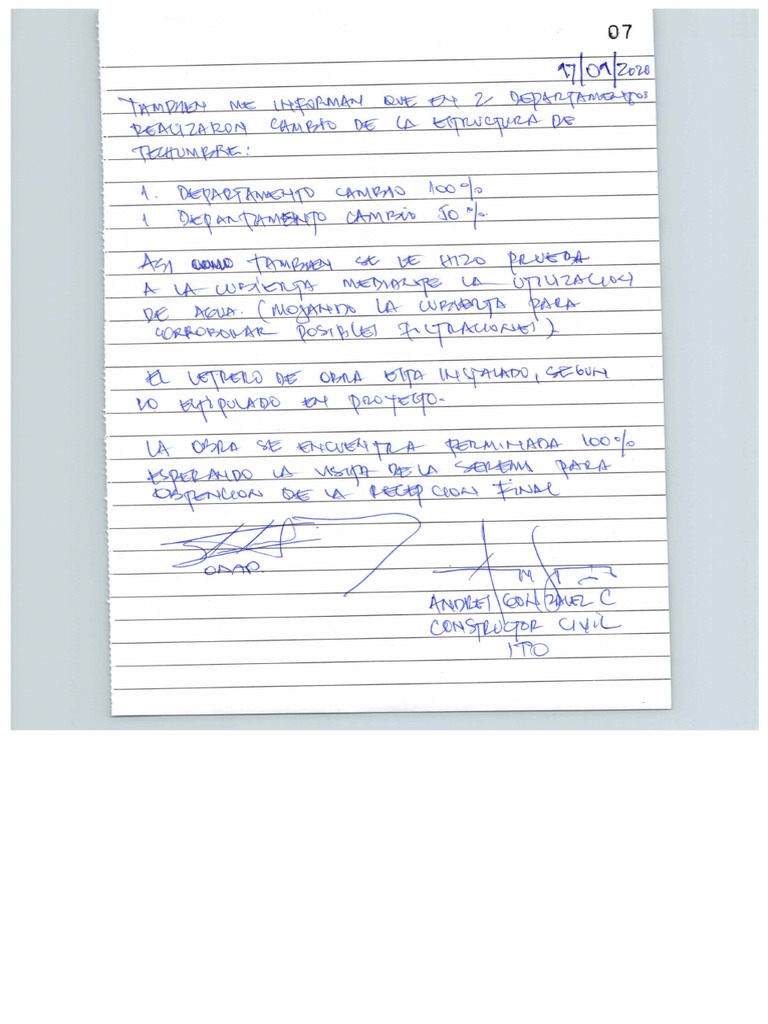 07
17/01/2020
TAMBIEN ME INFORMAN QUE EN 2 DEPARTAMENTOS
REALIZARON CAMBIO DE LA ESTRUCTURA DE
TECHUMBRE:
1. DEPARTAMENTO CAMBIO 100%
1 DEPARTAMENTO CAMBIO 50%.
ASI COMO TAMBIEN SE LE HIZO PRUEBA
A LA CUBIERTA MEDIANTE LA UTILIZACION
DE AGUA. (MOJANDO LA CUBIERTA PARA
CORROBORAR POSIBLES FILTRACIONES)
EL LETRERO DE OBRA ESTA INSTALADO, SEGUN
LO ESTIPULADO EN PROYECTO.
LA OBRA SE ENCUENTRA TERMINADA 100%
ESPERANDO LA VISITA DE LA SEREMI PARA
OBTENCION DE LA RECEPCION FINAL
ANDRES GONZALEZ C
CONSTRUCTOR CIVIL
ITO